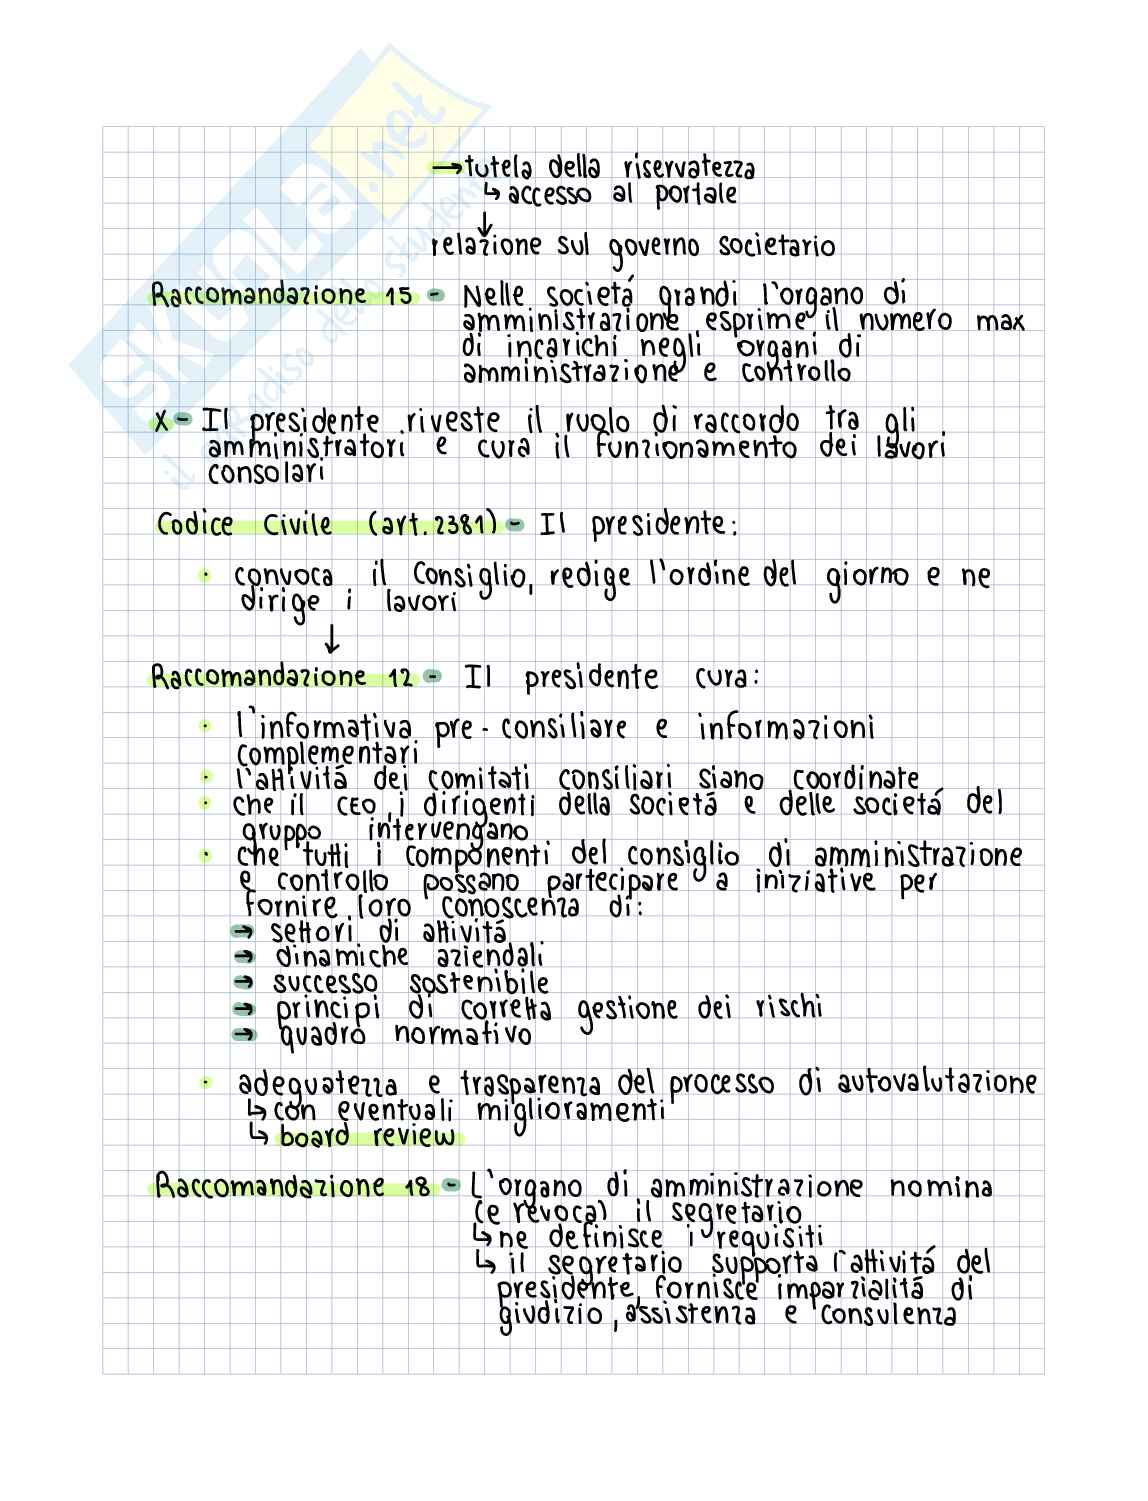 → tutela della riservatezza
↳ accesso al portale
↓
relazione sul governo societario
Raccomandazione 15 - Nelle societá grandi l'organo di
amministrazione esprime il numero max
di incarichi negli organi di
amministrazione e controllo
X - Il presidente riveste il ruolo di raccordo tra gli
amministratori e cura il funzionamento dei lavori
consolari
Codice Civile (art. 2381) - Il presidente:
• convoca il Consiglio, redige l'ordine del giorno e ne
dirige i lavori
↓
Raccomandazione 12 - Il presidente cura:
• l'informativa pre-consiliare e informazioni
complementari
• l'attivitá dei comitati consiliari siano coordinate
• che il CEO, i dirigenti della societá e delle societá del
gruppo intervengano
• che tutti i componenti del consiglio di amministrazione
e controllo possano partecipare a iniziative per
fornire loro conoscenza di:
→ settori di attivitá
→ dinamiche aziendali
→ successo sostenibile
→ principi di corretta gestione dei rischi
→ quadro normativo
• adeguatezza e trasparenza del processo di autovalutazione
↳ con eventuali miglioramenti
↳ board review
Raccomandazione 18 - L'organo di amministrazione nomina
(e revoca) il segretario
↳ ne definisce i requisiti
↳ il segretario supporta l'attivitá del
presidente, fornisce imparzialitá di
giudizio, assistenza e consulenza
SKUOLA.net
il paradiso dello studente